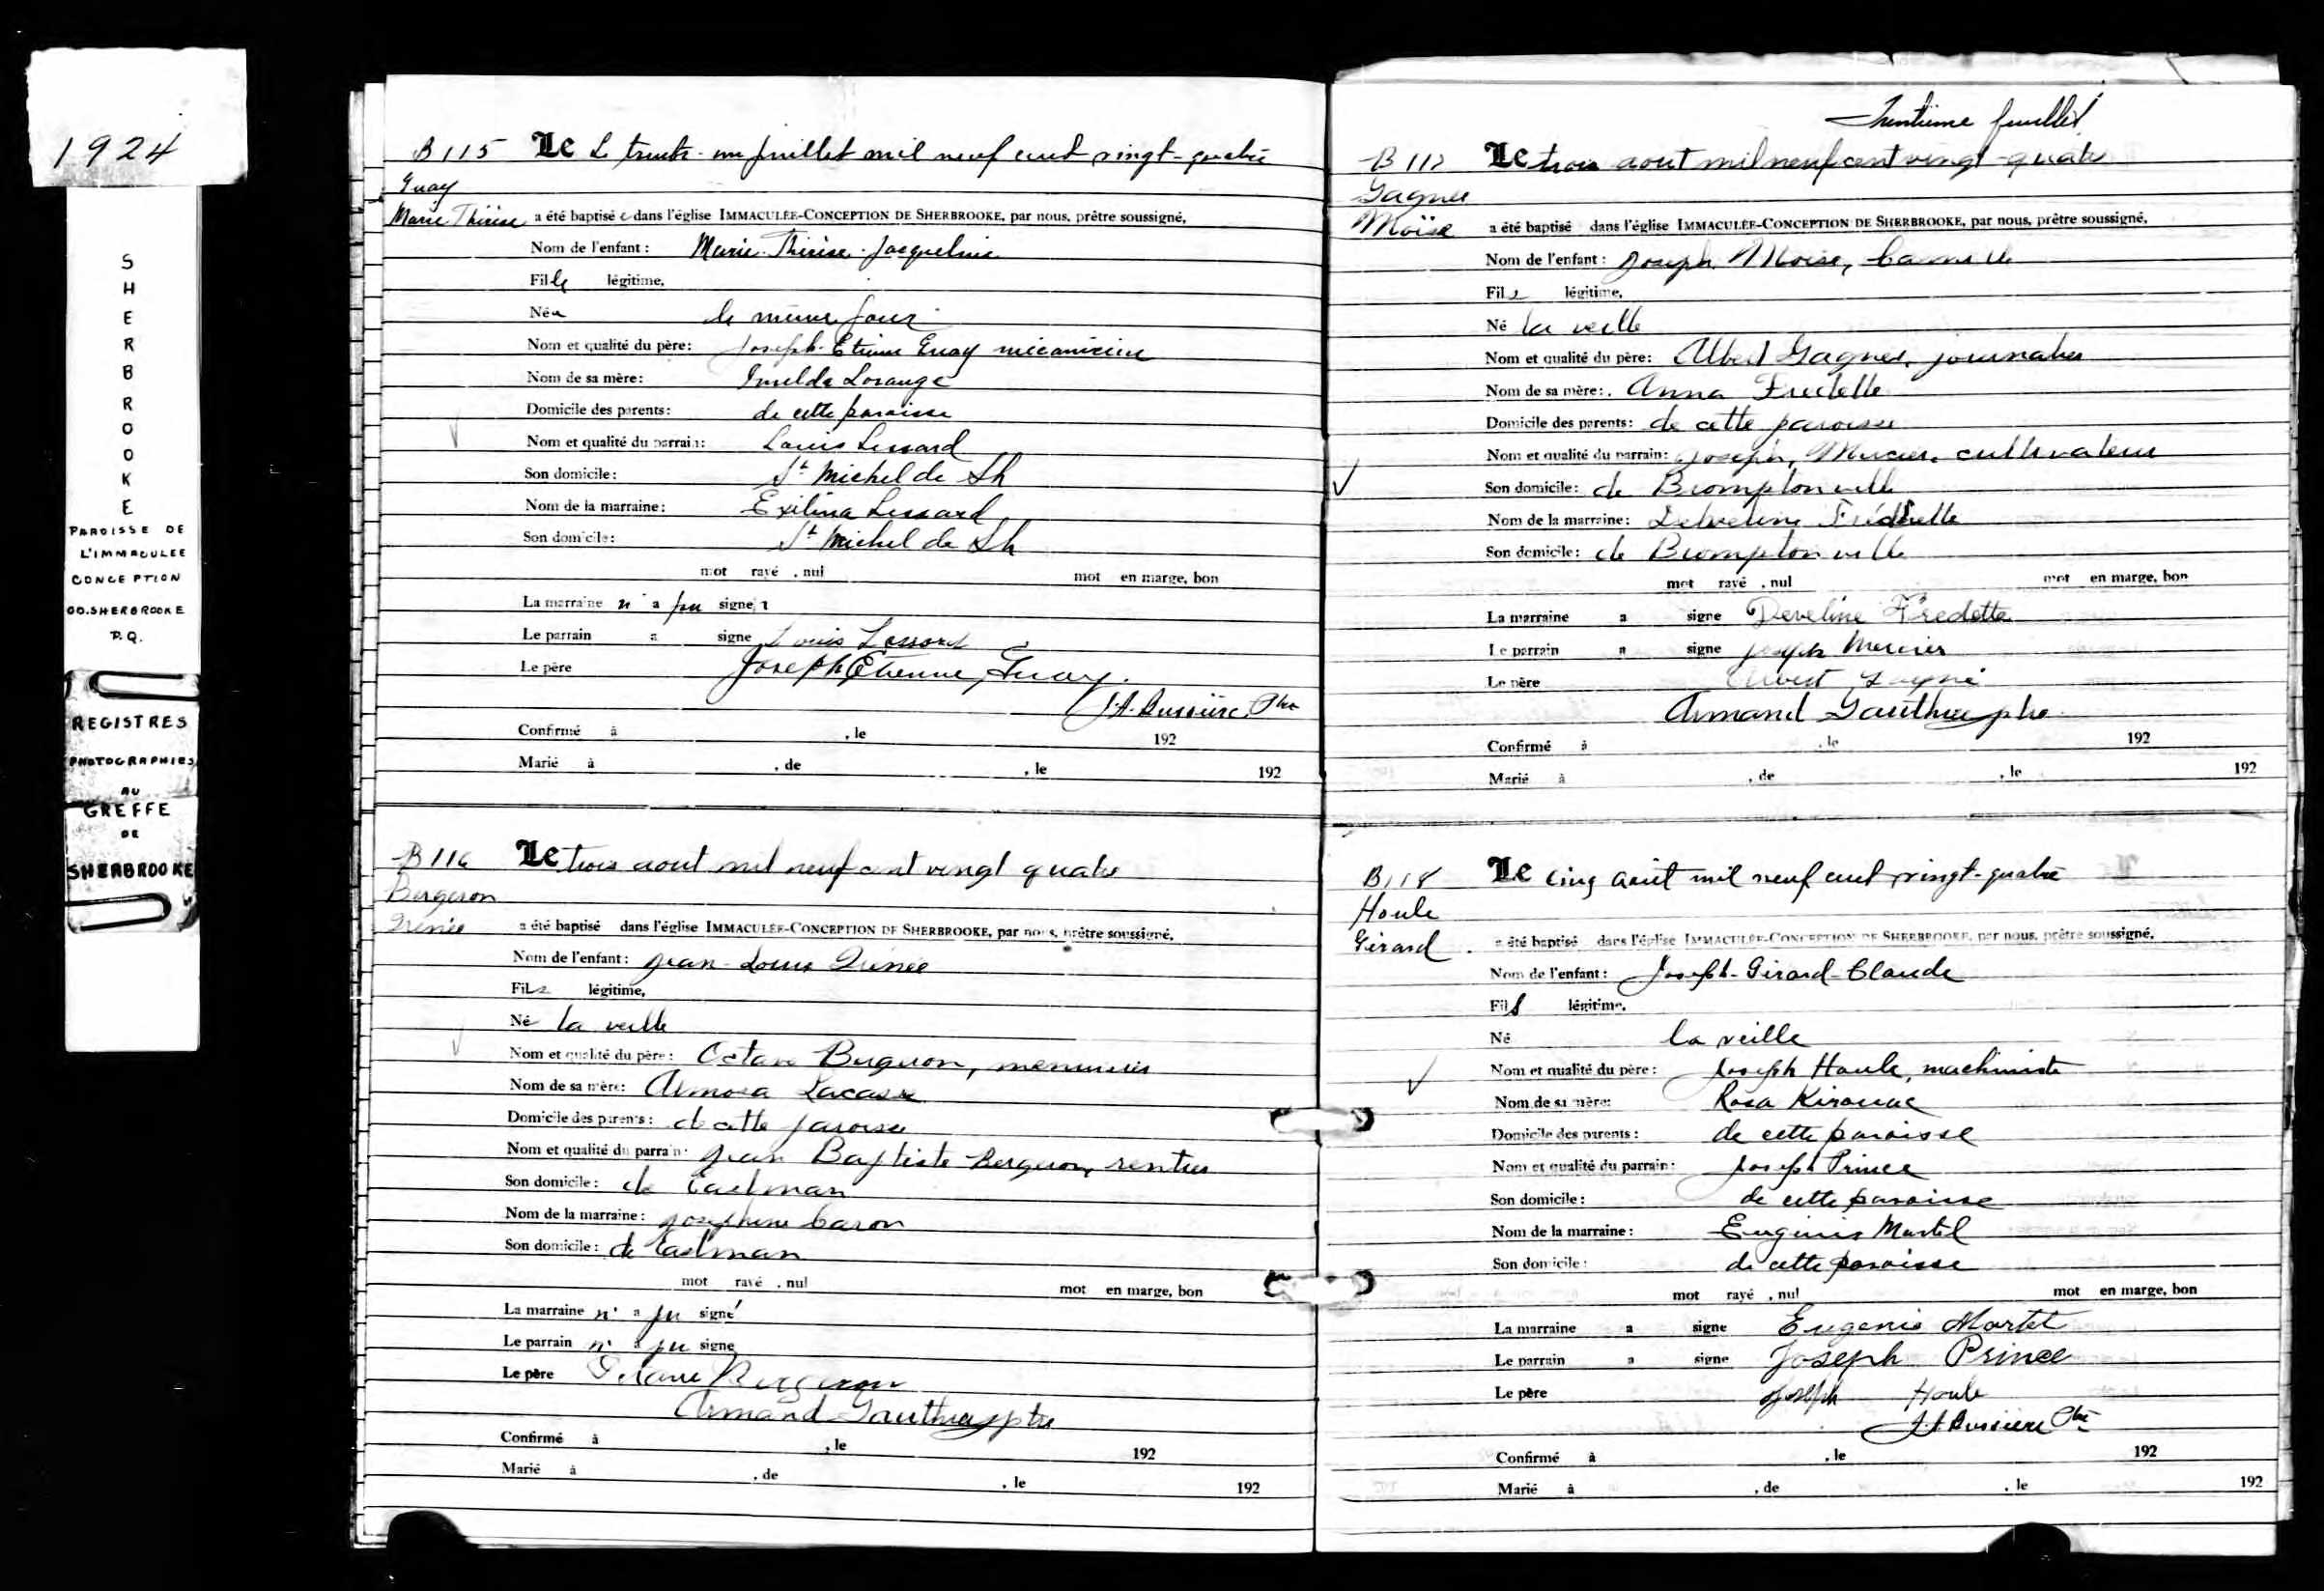 1924
SHERBROOKE
PAROISSE DE
L'IMMACULEE
CONCEPTION
CO. SHERBROOKE
P.Q.
REGISTRES
PHOTOGRAPHIES
AU
GREFFE
DE
SHERBROOKE
B 115 Le Le trente-un juillet mil neuf cent vingt-quatre
Guay
Marie Thérèse a été baptisé e dans l'église IMMACULÉE-CONCEPTION DE SHERBROOKE, par nous, prêtre soussigné,
Nom de l'enfant: Marie-Thérèse-Jacqueline
Fille légitime,
Née le même jour
Nom et qualité du père: Joseph-Etienne Guay mécanicien
Nom de sa mère: Imelda Lorange
Domicile des parents: de cette paroisse
Nom et qualité du parrain: Louis Lessard
Son domicile: St Michel de Sh
Nom de la marraine: Exilina Lessard
Son domicile: St Michel de Sh
mot rayé, nul mot en marge, bon
La marraine n'a pu signer
Le parrain a signe Louis Lessard
Le père Joseph Etienne Guay.
J.A. Bussière Ptre
Confirmé à , le 192
Marié à , de , le 192
B 116 Le trois aout mil neuf cent vingt quatre
Bergeron
Irénée a été baptisé dans l'église IMMACULÉE-CONCEPTION DE SHERBROOKE, par nous, prêtre soussigné,
Nom de l'enfant: Jean-Louis Irénée
Fils légitime,
Né la veille
Nom et qualité du père: Octave Bergeron, menuisier
Nom de sa mère: Armosa Lacasse
Domicile des parents: de cette paroisse
Nom et qualité du parrain: Jean Baptiste Bergeron, rentier
Son domicile: de Eastman
Nom de la marraine: Josephine Caron
Son domicile: de Eastman
mot rayé, nul mot en marge, bon
La marraine n'a pu signé
Le parrain n'a pu signe
Le père Octave Bergeron
Armand Gauthier ptre
Confirmé à , le 192
Marié à , de , le 192
Trentième feuillet
B 117 Le trois aout mil neuf cent vingt-quatre
Gagner
Moïse a été baptisé dans l'église IMMACULÉE-CONCEPTION DE SHERBROOKE, par nous, prêtre soussigné,
Nom de l'enfant: Joseph, Moïse, Camille
Fils légitime,
Né la veille
Nom et qualité du père: Albert Gagner, journalier
Nom de sa mère: Anna Fredette
Domicile des parents: de cette paroisse
Nom et qualité du parrain: Joseph, Mercier, cultivateur
Son domicile: de Bromptonville
Nom de la marraine: Fredette
Son domicile: de Bromptonville
mot rayé, nul mot en marge, bon
La marraine a signe Develine Fredette
Le parrain a signe Joseph Mercier
Le père Albert Gagné
Armand Gauthier ptre
Confirmé à , le 192
Marié à , de , le 192
B 118 Le cinq août mil neuf cent vingt-quatre
Houle
Gérard a été baptisé dans l'église IMMACULÉE-CONCEPTION DE SHERBROOKE, par nous, prêtre soussigné,
Nom de l'enfant: Joseph-Gérard-Claude
Fils légitime,
Né la veille
Nom et qualité du père: Joseph Houle, machiniste
Nom de sa mère: Rosa Kirouac
Domicile des parents: de cette paroisse
Nom et qualité du parrain: Joseph Prince
Son domicile: de cette paroisse
Nom de la marraine: Eugénie Martel
Son domicile: de cette paroisse
mot rayé, nul mot en marge, bon
La marraine a signe Eugenie Martel
Le parrain a signe Joseph Prince
Le père Joseph Houle
J.A. Bussière Ptre
Confirmé à , le 192
Marié à , de , le 192